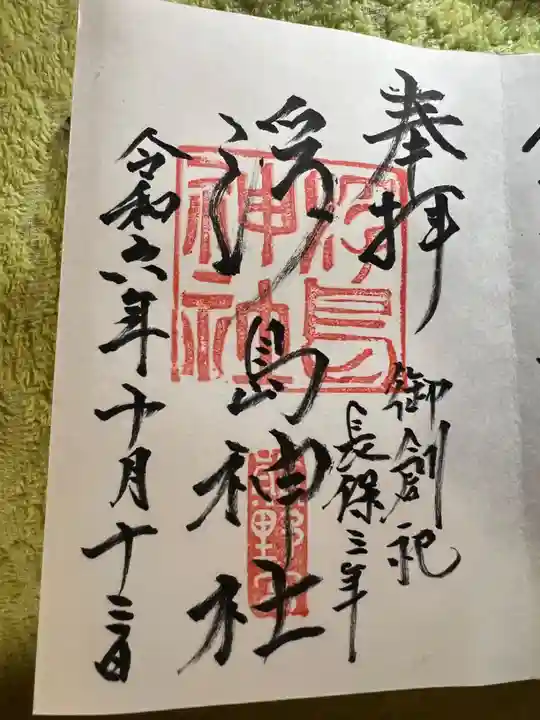 奉拝
御創祀
長保三年
浮島神社
浮島
神社
令和六年十月十三日